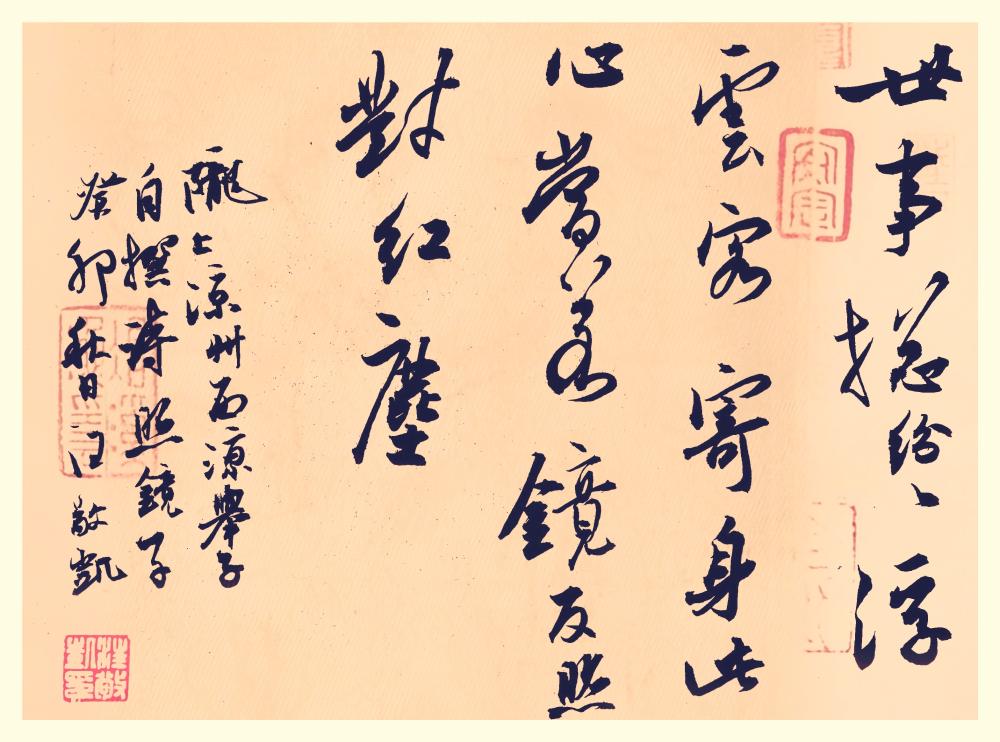 世事揔紛〻浮
雲客寄身此
心當若鏡反照
對紅塵
隴上涼州西涼舉子
自撰詩照鏡子
癸卯秋日汪敬凱